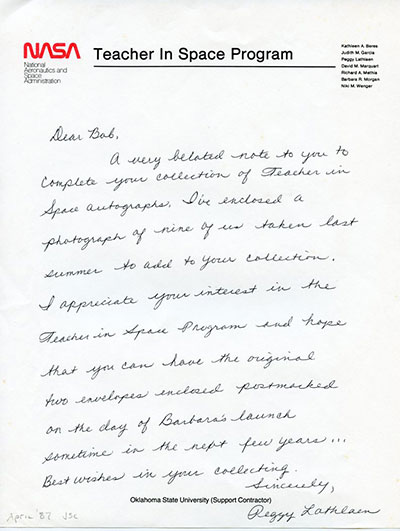 NASA
National
Aeronautics and
Space
Administration
Teacher In Space Program
Kathleen A. Beres
Judith M. Garcia
Peggy Lathlaen
David M. Marquart
Richard A. Methia
Barbara R. Morgan
Niki M. Wenger
Dear Bob,
A very belated note to you to
complete your collection of Teacher in
Space autographs. I've enclosed a
photograph of nine of us taken last
summer to add to your collection.
I appreciate your interest in the
Teacher in Space Program and hope
that you can have the original
two envelopes enclosed postmarked
on the day of Barbara's launch
sometime in the next few years...
Best wishes in your collecting.
Sincerely,
Peggy Lathlaen
Oklahoma State University (Support Contractor)
April '87 JSC